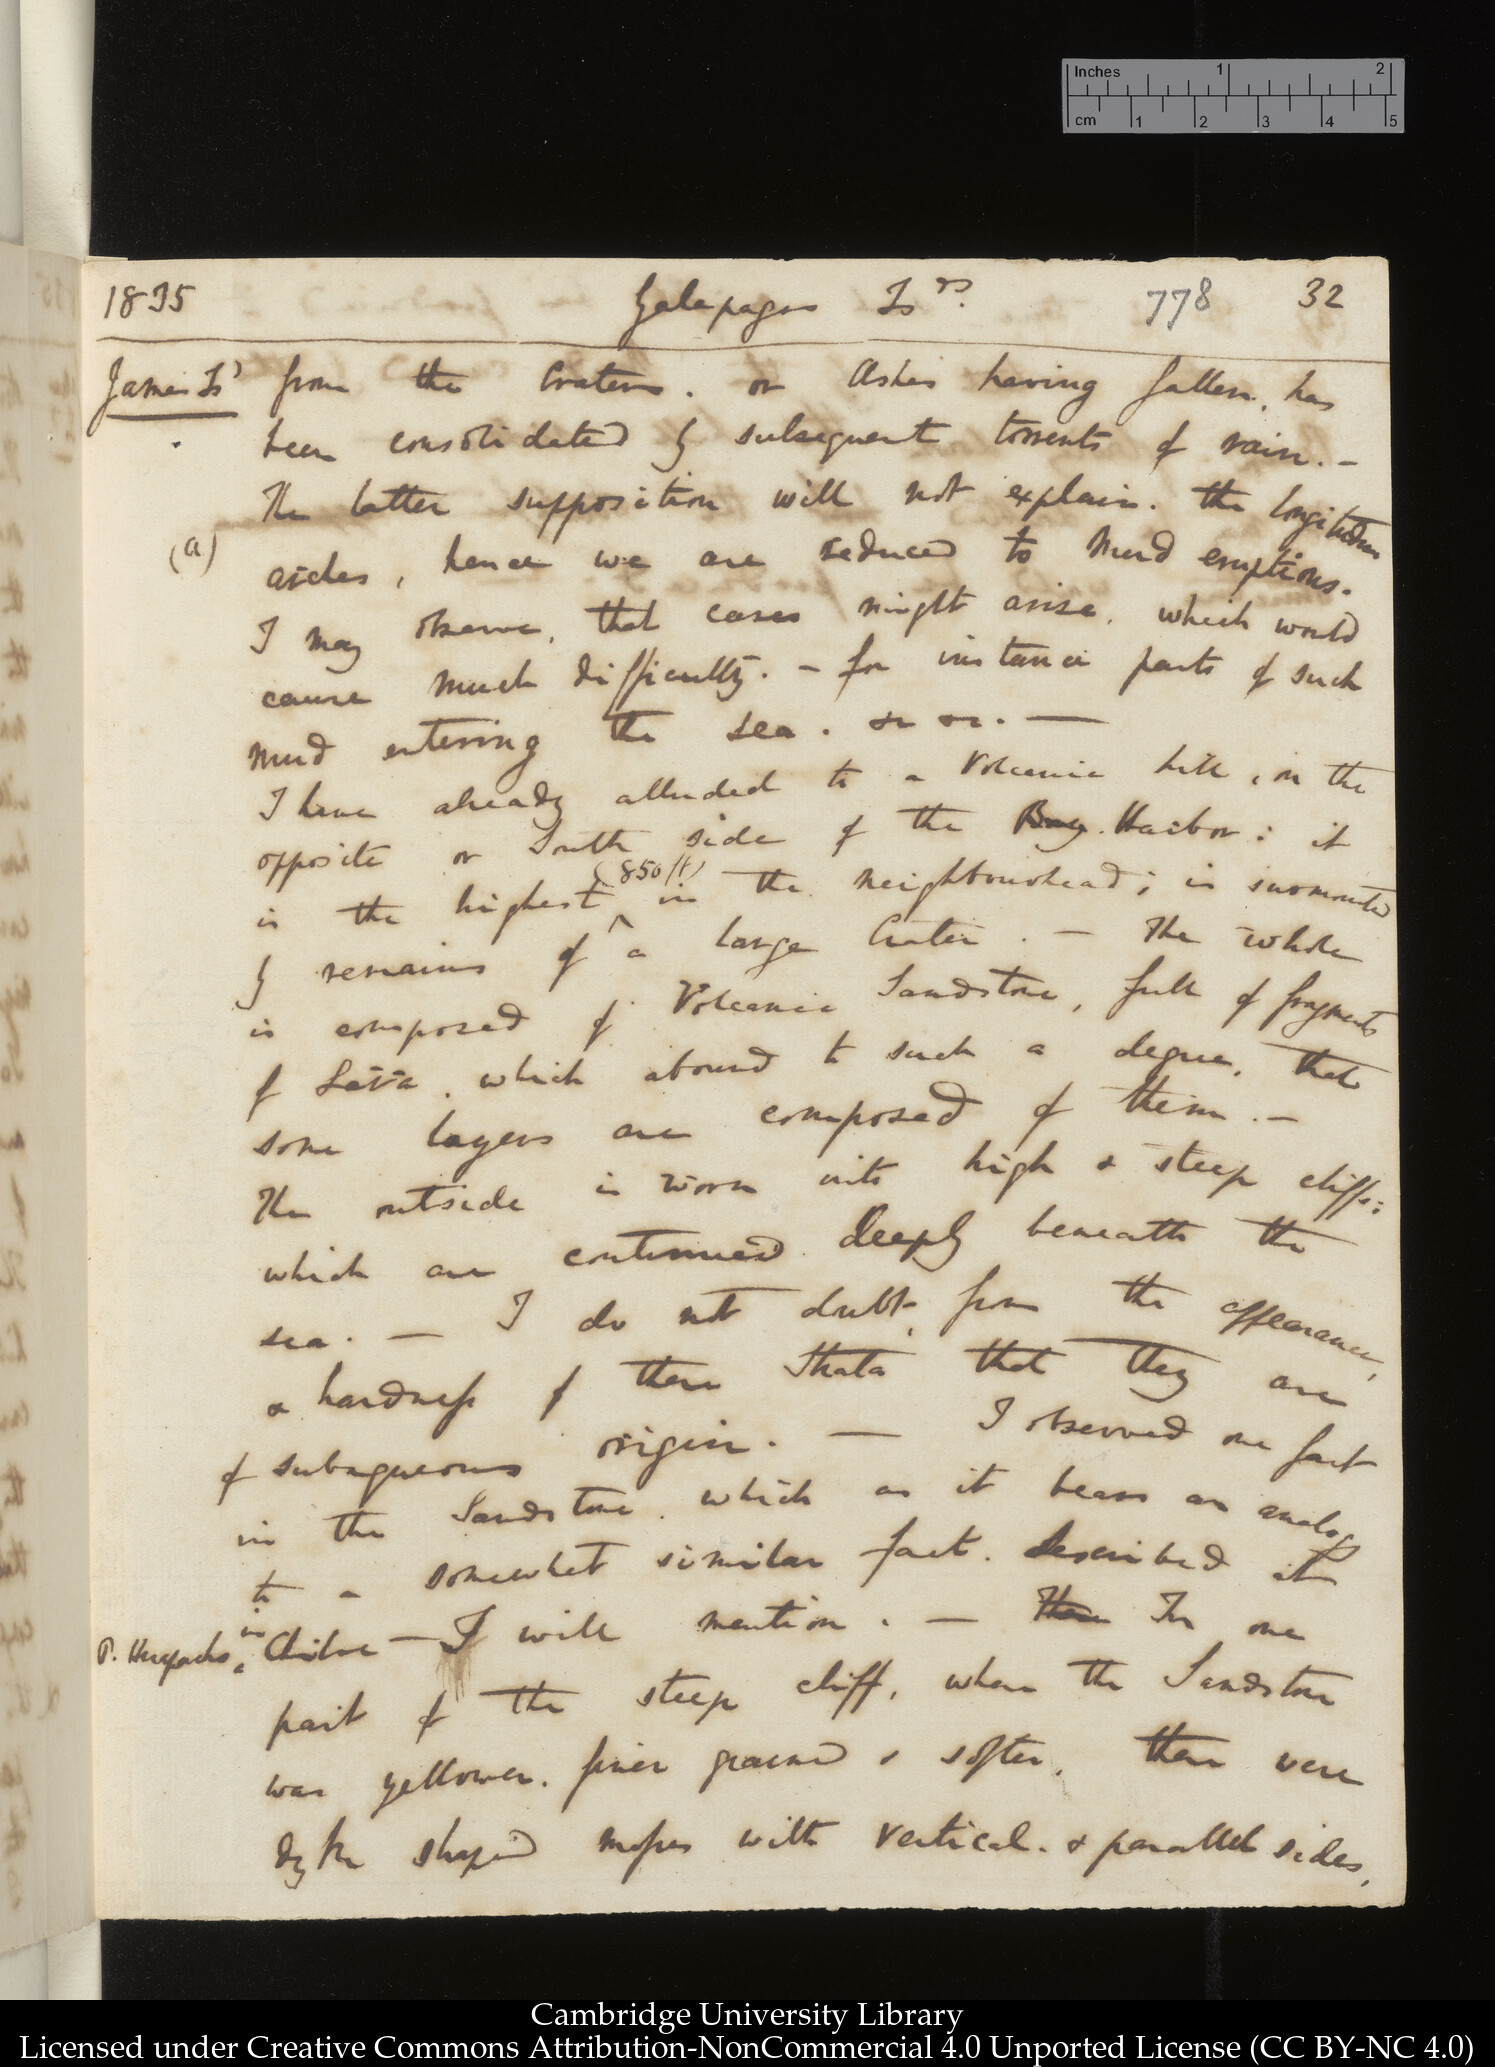 Inches 1 2
cm 1 2 3 4 5
1835 Galapagos Is ds. 778 32
James Isd from the Craters. or Ashes having fallen, has
been consolidated by subsequent torrents of rain. —
The latter supposition will not explain. the longitudinal
(a) arches, hence we are reduced to Mud eruptions.
I may observe, that cases might arise, which would
cause much difficulty. — for instance parts of such
mud entering the sea. &c &c. —
I have already alluded to a Volcanic hill, on the
opposite or South side of the Bay. Harbor: it
(850 ft)
is the highest ^ in the neighbourhead; is surmounted
by remains of a large Crater. — The whole
is composed of Volcanic Sandstone, full of fragments
of Lava, which abound to such a degree, that
some layers are composed of them. —
The outside is worn into high & steep cliffs;
which are continued deeply beneath the
sea. — I do not doubt, from the appearance,
& hardness of these Strata that they are
of subaqueous origin. — I observed one fact
in the Sandstone, which as it bears an analogy
to a somewhat similar fact. described at
P. Huafacho, in Chiloe — I will mention. — There In one
part of the steep cliff, where the Sandstone
was yellower, finer grained & softer, there were
dyke shaped masses with vertical. & parallel sides,
Cambridge University Library
Licensed under Creative Commons Attribution-NonCommercial 4.0 Unported License (CC BY-NC 4.0)